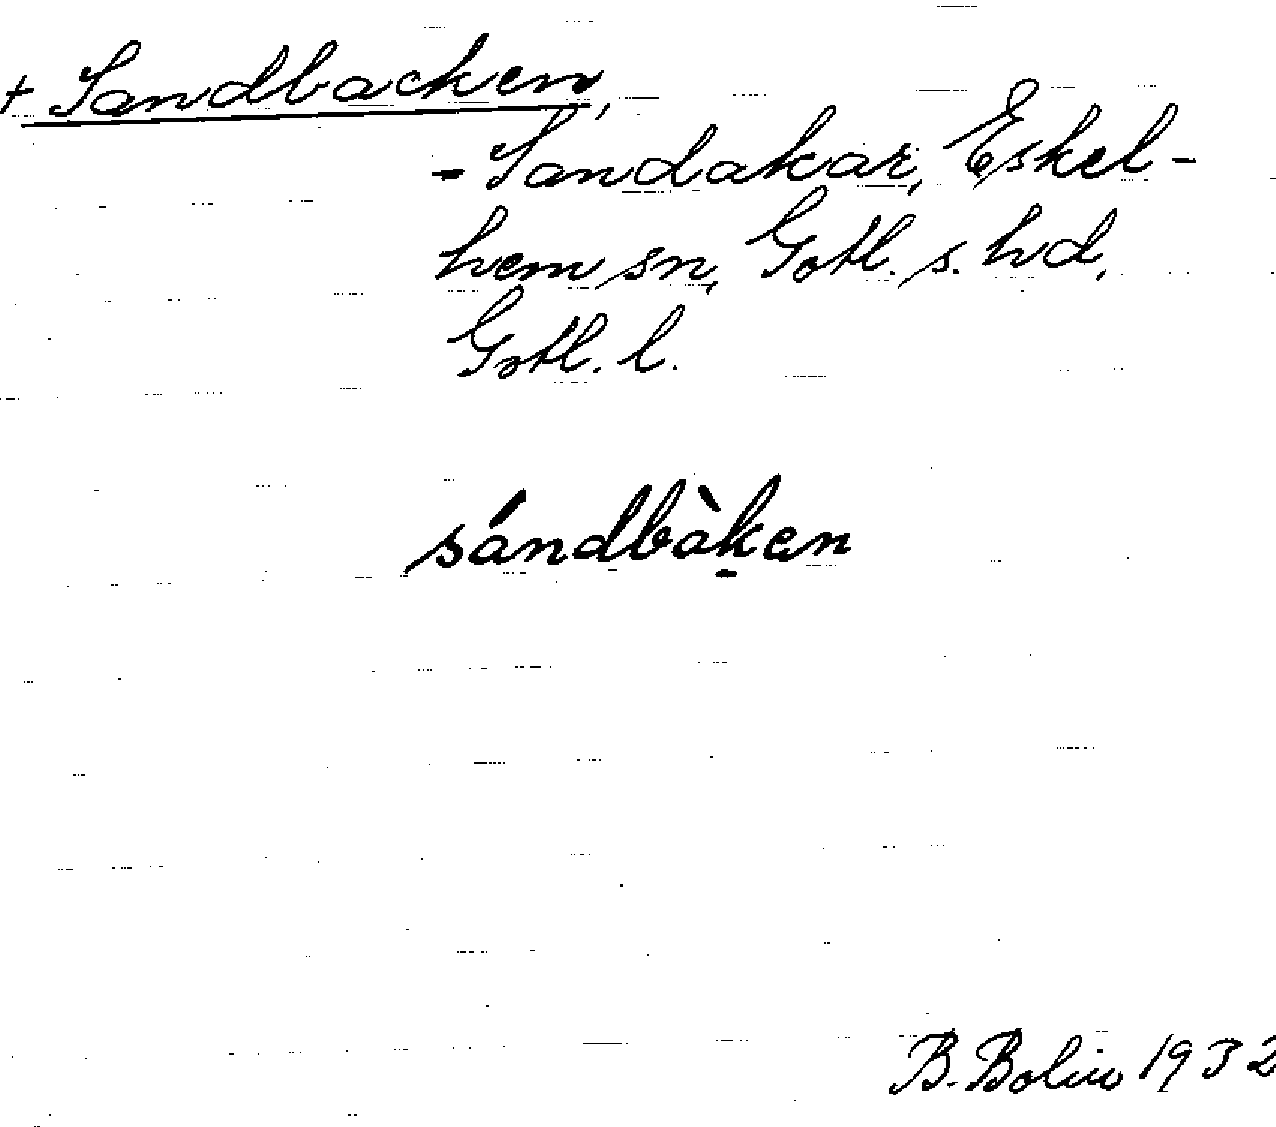 + Sandbacken,
- Sandakar, Eskel-
hem sn, Gotl. s. hd,
Gotl. l.
sándbàḵen
B. Bolin 1932